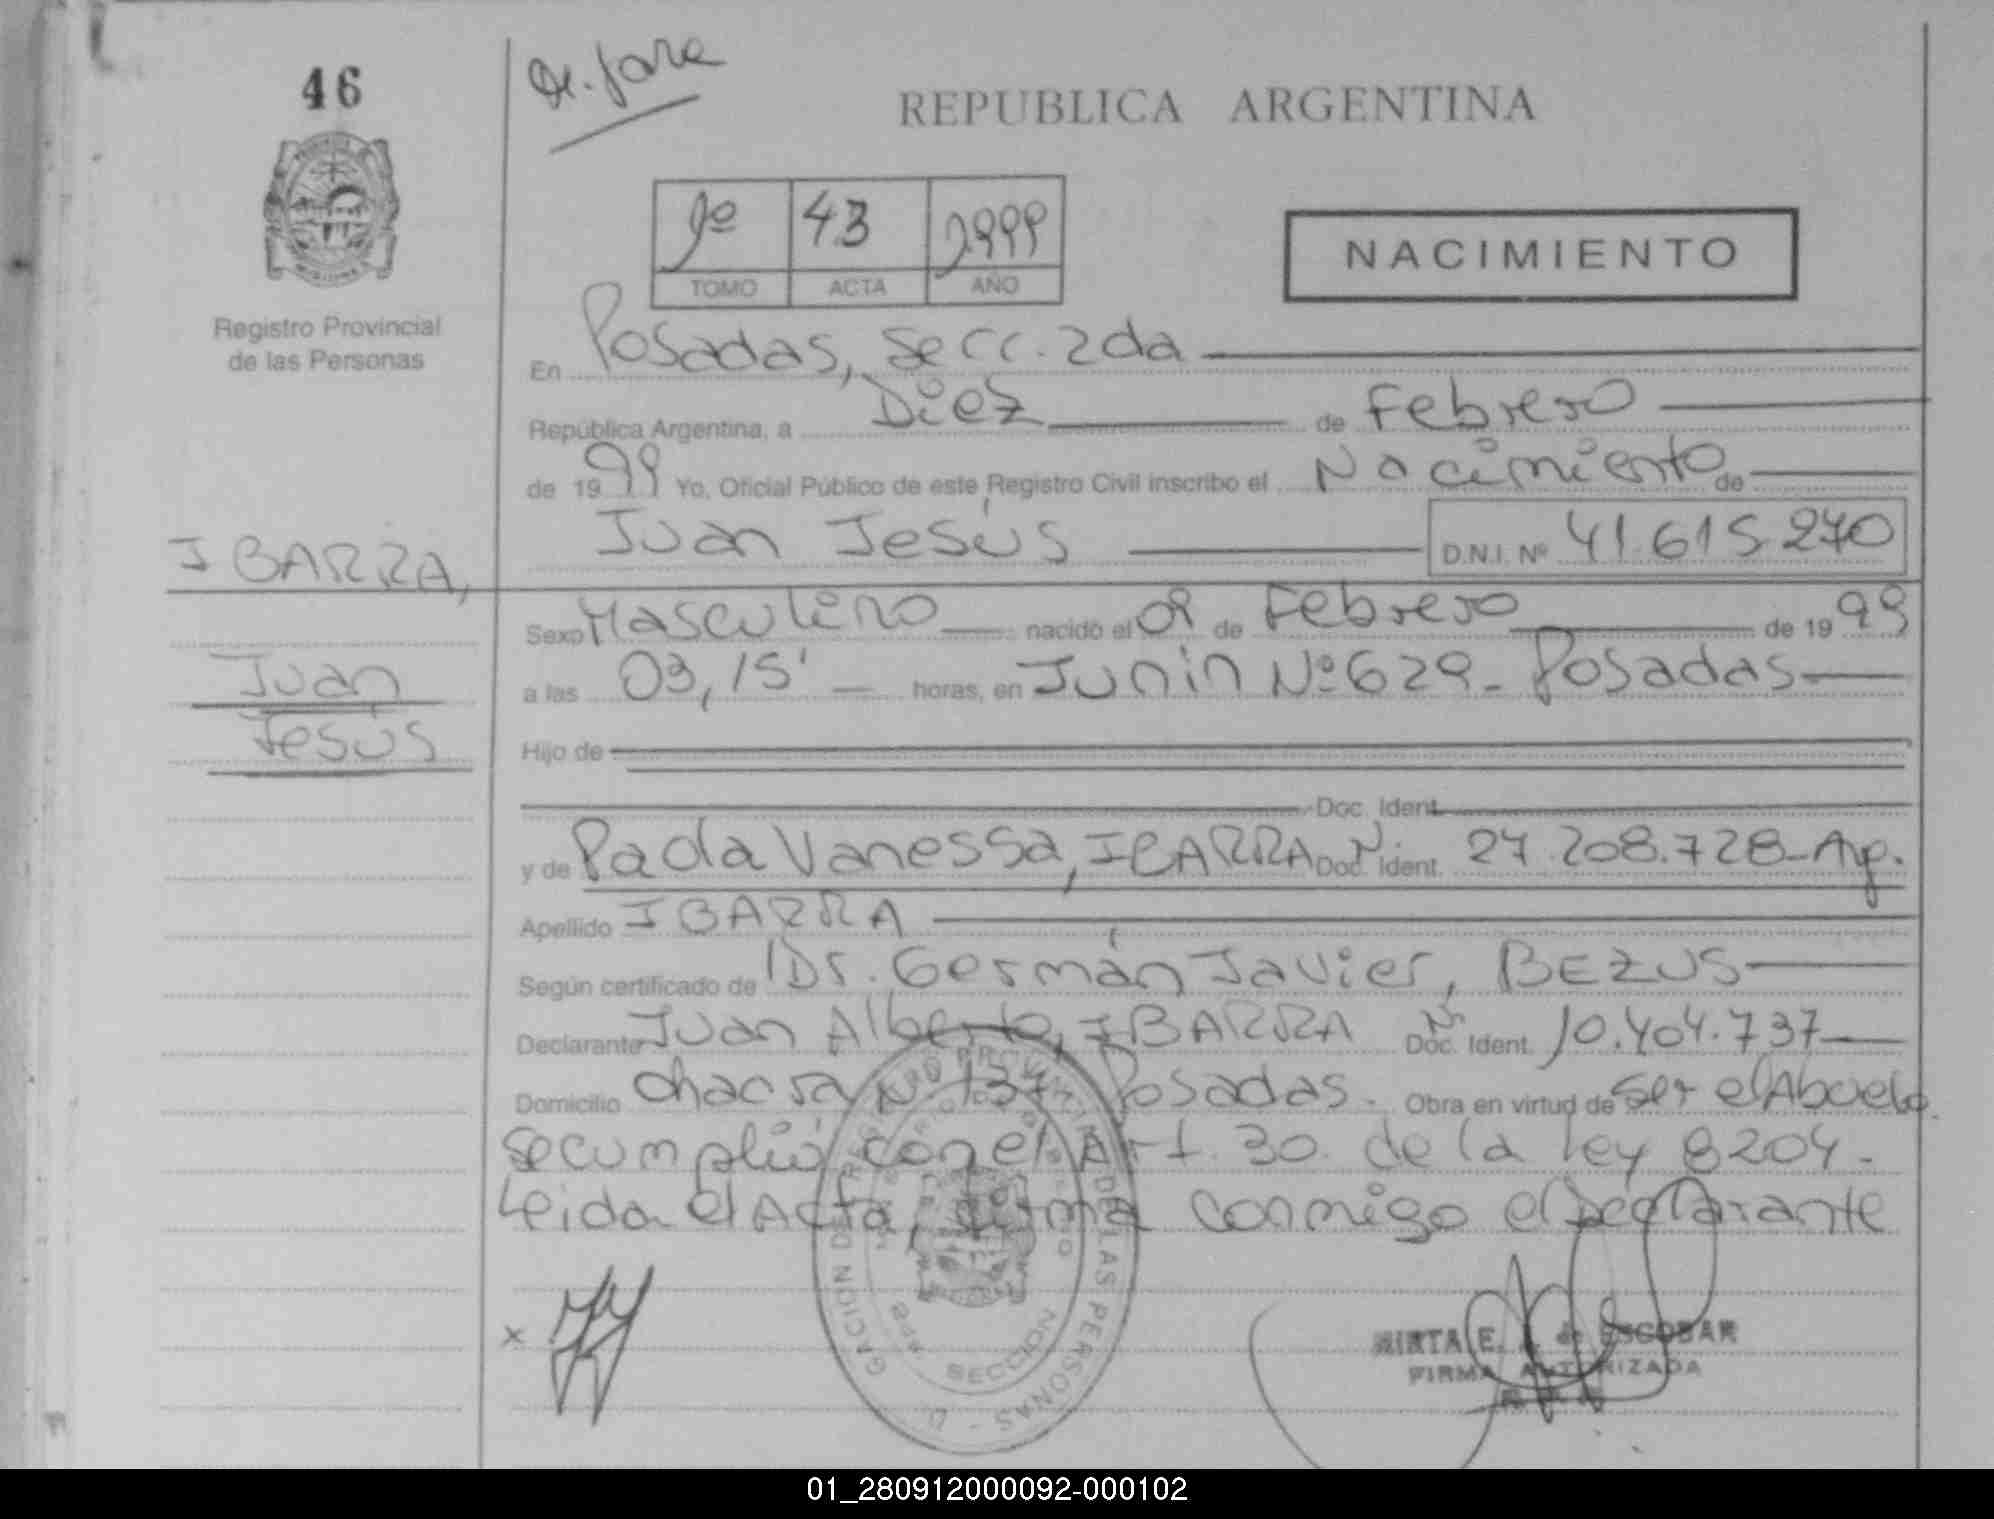 46
REPUBLICA ARGENTINA
1º 43 1999
TOMO ACTA AÑO
NACIMIENTO
Registro Provincial
de las Personas
En Posadas, Secc. 2da
República Argentina, a Diez de Febrero
de 1999 Yo, Oficial Público de este Registro Civil inscribo el Nacimiento de
Juan Jesús D.N.I. Nº 41.615.270
IBARRA,
Juan
Jesús
Sexo Masculino nacido el 09 de Febrero de 1999
a las 03,15' horas, en Junin Nº 629- Posadas
Hijo de
Doc. Ident.
y de Paola Vanessa, IBARRA Doc. Ident. Nº 27.208.728-Arg.
Apellido IBARRA
Según certificado de Dr. Germán Javier, BEZUS
Declarante Juan Alberto, IBARRA Doc. Ident. Nº 10.404.737
Domicilio chacra Nº 137 Posadas. Obra en virtud de ser el Abuelo.
se cumplió con el Art. 30 de la ley 8204-
Leida el Acta, firma conmigo el Declarante
x
REGISTRO PROVINCIAL DE LAS PERSONAS
SECCION
MIRTA E. de ESCOBAR
FIRMA AUTORIZADA
01_280912000092-000102